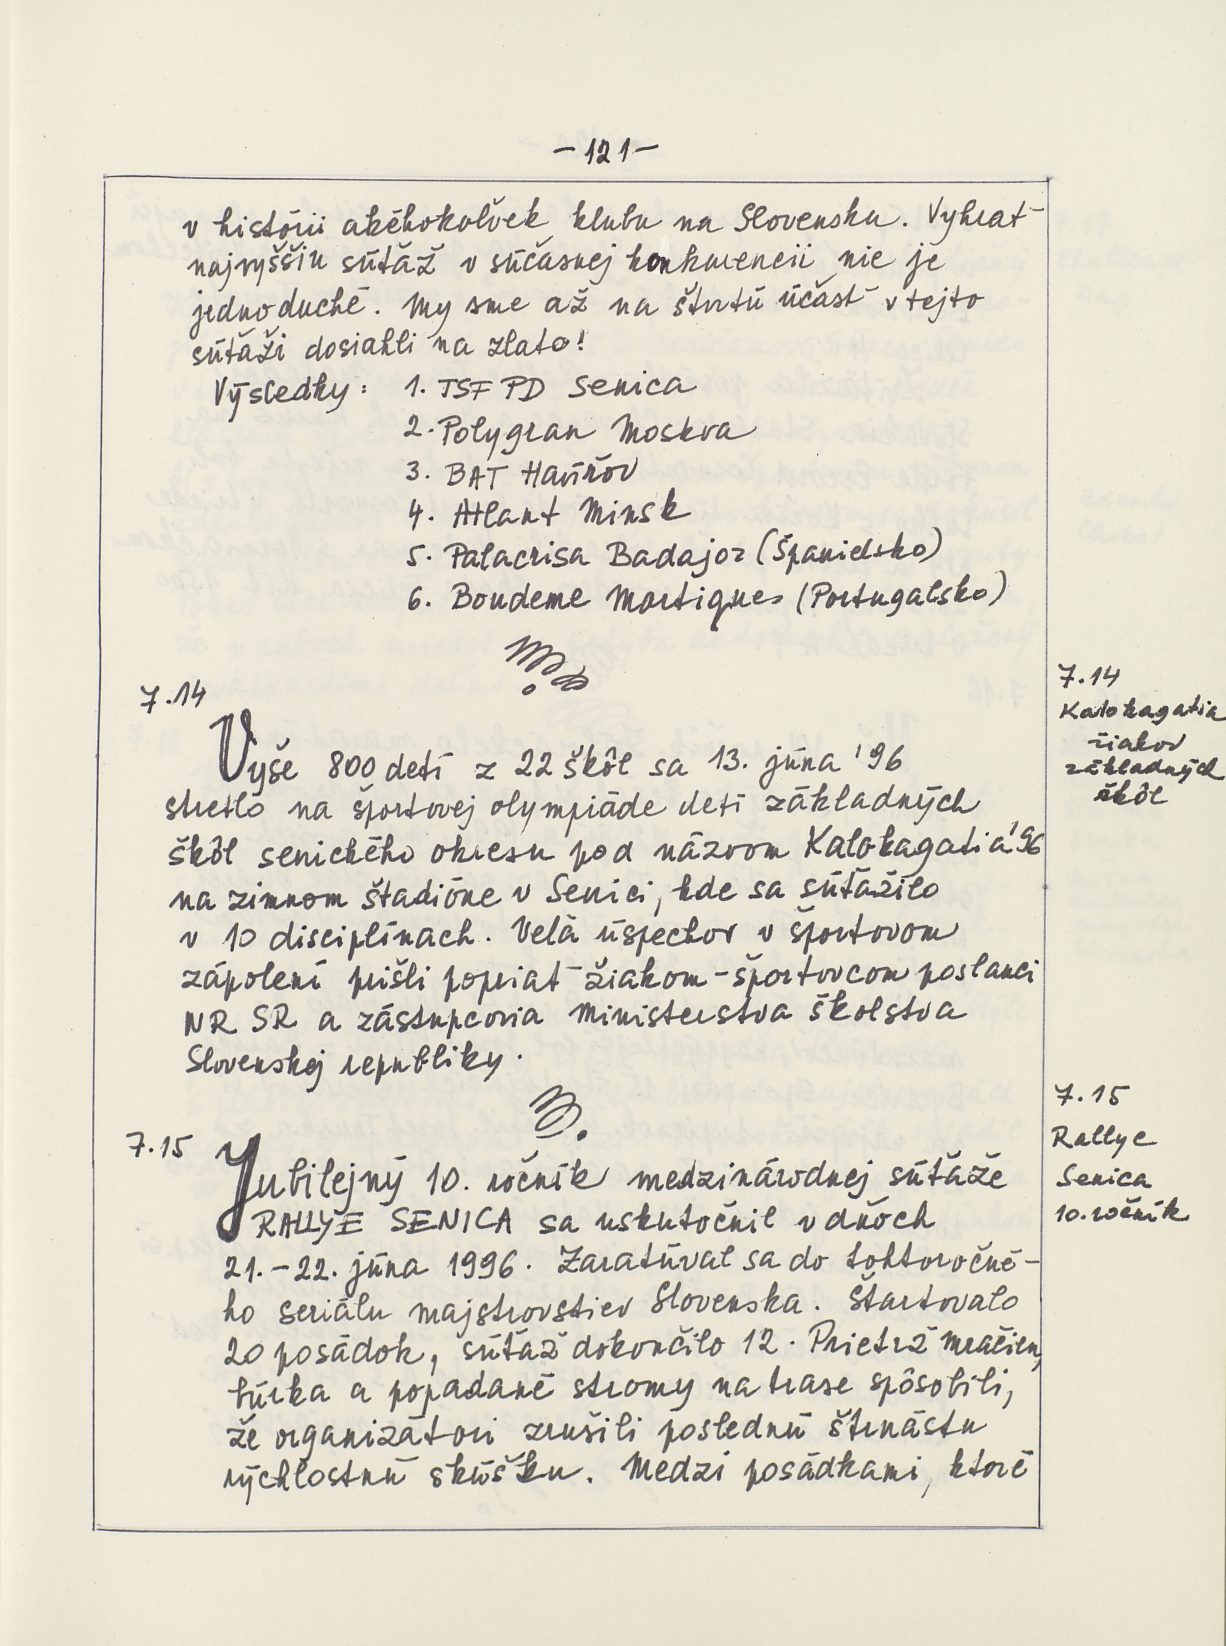 -121-
v histórii akéhokoľvek klubu na Slovensku. Vyhrať
najvyššiu súťaž v súčasnej konkurencii nie je
jednoduché. My sme až na štvrtú účasť v tejto
súťaži dosiahli na zlato!
Výsledky: 1. TSF PD Senica
2. Polygran Moskva
3. BAT Havířov
4. Atlant Minsk
5. Palacrisa Badajoz (Španielsko)
6. Boudeme Martigues (Portugalsko)
7.14
7.14
Kalokagatia
žiakov
základných
škôl
Vyše 800 detí z 22 škôl sa 13. júna '96
stretlo na športovej olympiáde detí základných
škôl senického okresu pod názvom Kalokagatia '96
na zimnom štadióne v Senici, kde sa súťažilo
v 10 disciplínach. Veľa úspechov v športovom
zápolení prišli popriať žiakom-športovcom poslanci
NR SR a zástupcovia Ministerstva školstva
Slovenskej republiky.
7.15
7.15
Rallye
Senica
10. ročník
Jubilejný 10. ročník medzinárodnej súťaže
RALLYE SENICA sa uskutočnil v dňoch
21.-22. júna 1996. Zaraďúval sa do tohtoročné-
ho seriálu majstrovstiev Slovenska. Štartovalo
20 posádok, súťaž dokončilo 12. Prietrž mračien,
búrka a popadané stromy na trase spôsobili,
že organizátori zrušili poslednú štrnástu
rýchlostnú skúšku. Medzi posádkami, ktoré